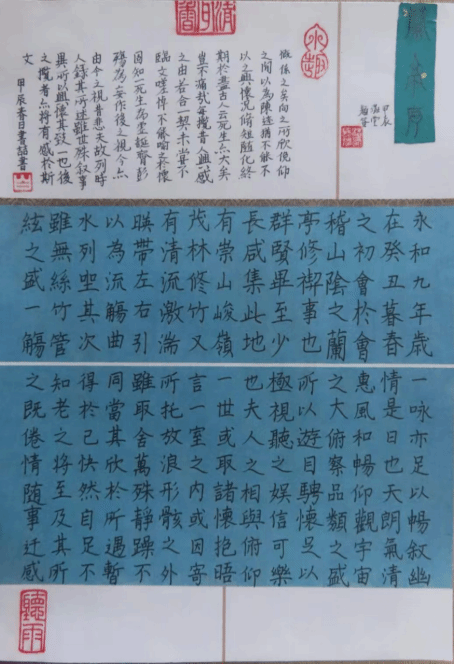 蘭亭序
甲辰
永和九年歲
在癸丑暮春
之初會於會
稽山陰之蘭
亭修禊事也
群賢畢至少
長咸集此地
有崇山峻嶺
茂林修竹又
有清流激湍
暎帶左右引
以為流觴曲
水列坐其次
雖無絲竹管
絃之盛一觴
一咏亦足以暢叙幽
情是日也天朗氣清
惠風和暢仰觀宇宙
之大俯察品類之盛
所以遊目騁懷足以
極視聽之娛信可樂
也夫人之相與俯仰
一世或取諸懷抱晤
言一室之內或因寄
所托放浪形骸之外
雖取舍萬殊靜躁不
同當其欣於所遇暫
得於己快然自足不
知老之將至及其所
之既倦情隨事迁感
慨係之矣向之所欣俛仰
之間以為陳迹猶不能不
以之興懷況修短隨化終
期於盡古人云死生亦大矣
豈不痛哉每攬昔人興感
之由若合一契未嘗不
臨文嗟悼不能喻之於懷
固知一死生為虛誕齊彭
殤為妄作後之視今亦
由今之視昔悲夫故列時
人錄其所述雖世殊叙事
異所以興懷其致一也後
之攬者亦將有感於斯
文
甲辰春日書
聽雨